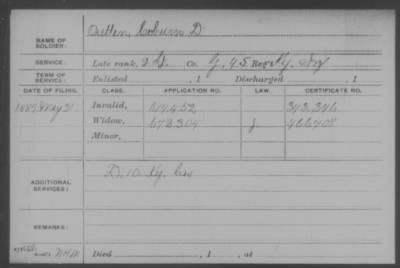 NAME OF SOLDIER: Outten, Coburn D
SERVICE: Late rank, 2 Lt. Co. G, 45 Reg't Ky. Inf
TERM OF SERVICE: Enlisted , 1 Discharged , 1
DATE OF FILING. CLASS. APPLICATION NO. LAW. CERTIFICATE NO.
1887 May 31 Invalid, 614.452 343.346
Widow, 678.304 466708
Minor,
ADDITIONAL SERVICES: D. 10 Ky. Cav
REMARKS:
Died , 1 , at